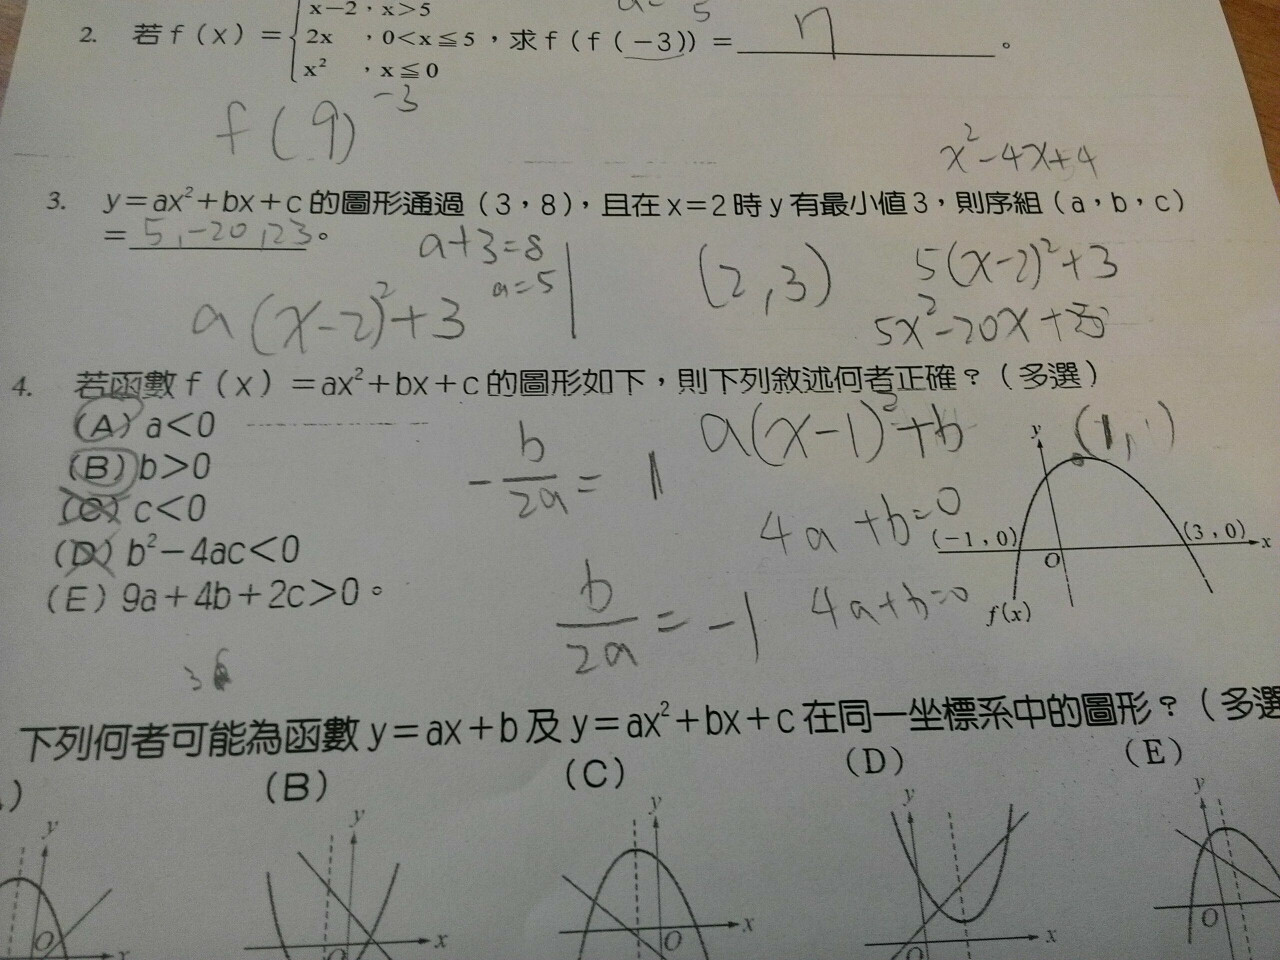 x−2，x>5
2. 若 f（x）＝ 2x ，0<x≦5，求 f（f（−3））＝ 。
x² ，x≦0
f(9)
-3
x²-4x+4
3. y＝ax²＋bx＋c 的圖形通過（3，8），且在 x＝2 時 y 有最小值 3，則序組（a，b，c）
＝ 5,-20,23 。
a+3=8
a=5
(2,3)
5(x-2)²+3
a(x-2)²+3
5x²-20x+
4. 若函數 f（x）＝ax²＋bx＋c 的圖形如下，則下列敘述何者正確？（多選）
(A) a<0
(B) b>0
(C) c<0
(D) b²−4ac<0
(E) 9a＋4b＋2c>0。
-b/2a = 1
a(x-1)²+b
4a+b=0
b/2a = -1
4a+b=0
(1, )
y
(−1，0)
(3，0)
x
O
f(x)
下列何者可能為函數 y＝ax＋b 及 y＝ax²＋bx＋c 在同一坐標系中的圖形？（多選
)
(B)
(C)
(D)
(E)
y
y
y
y
y
O
x
O
x
O
x
O
x
O